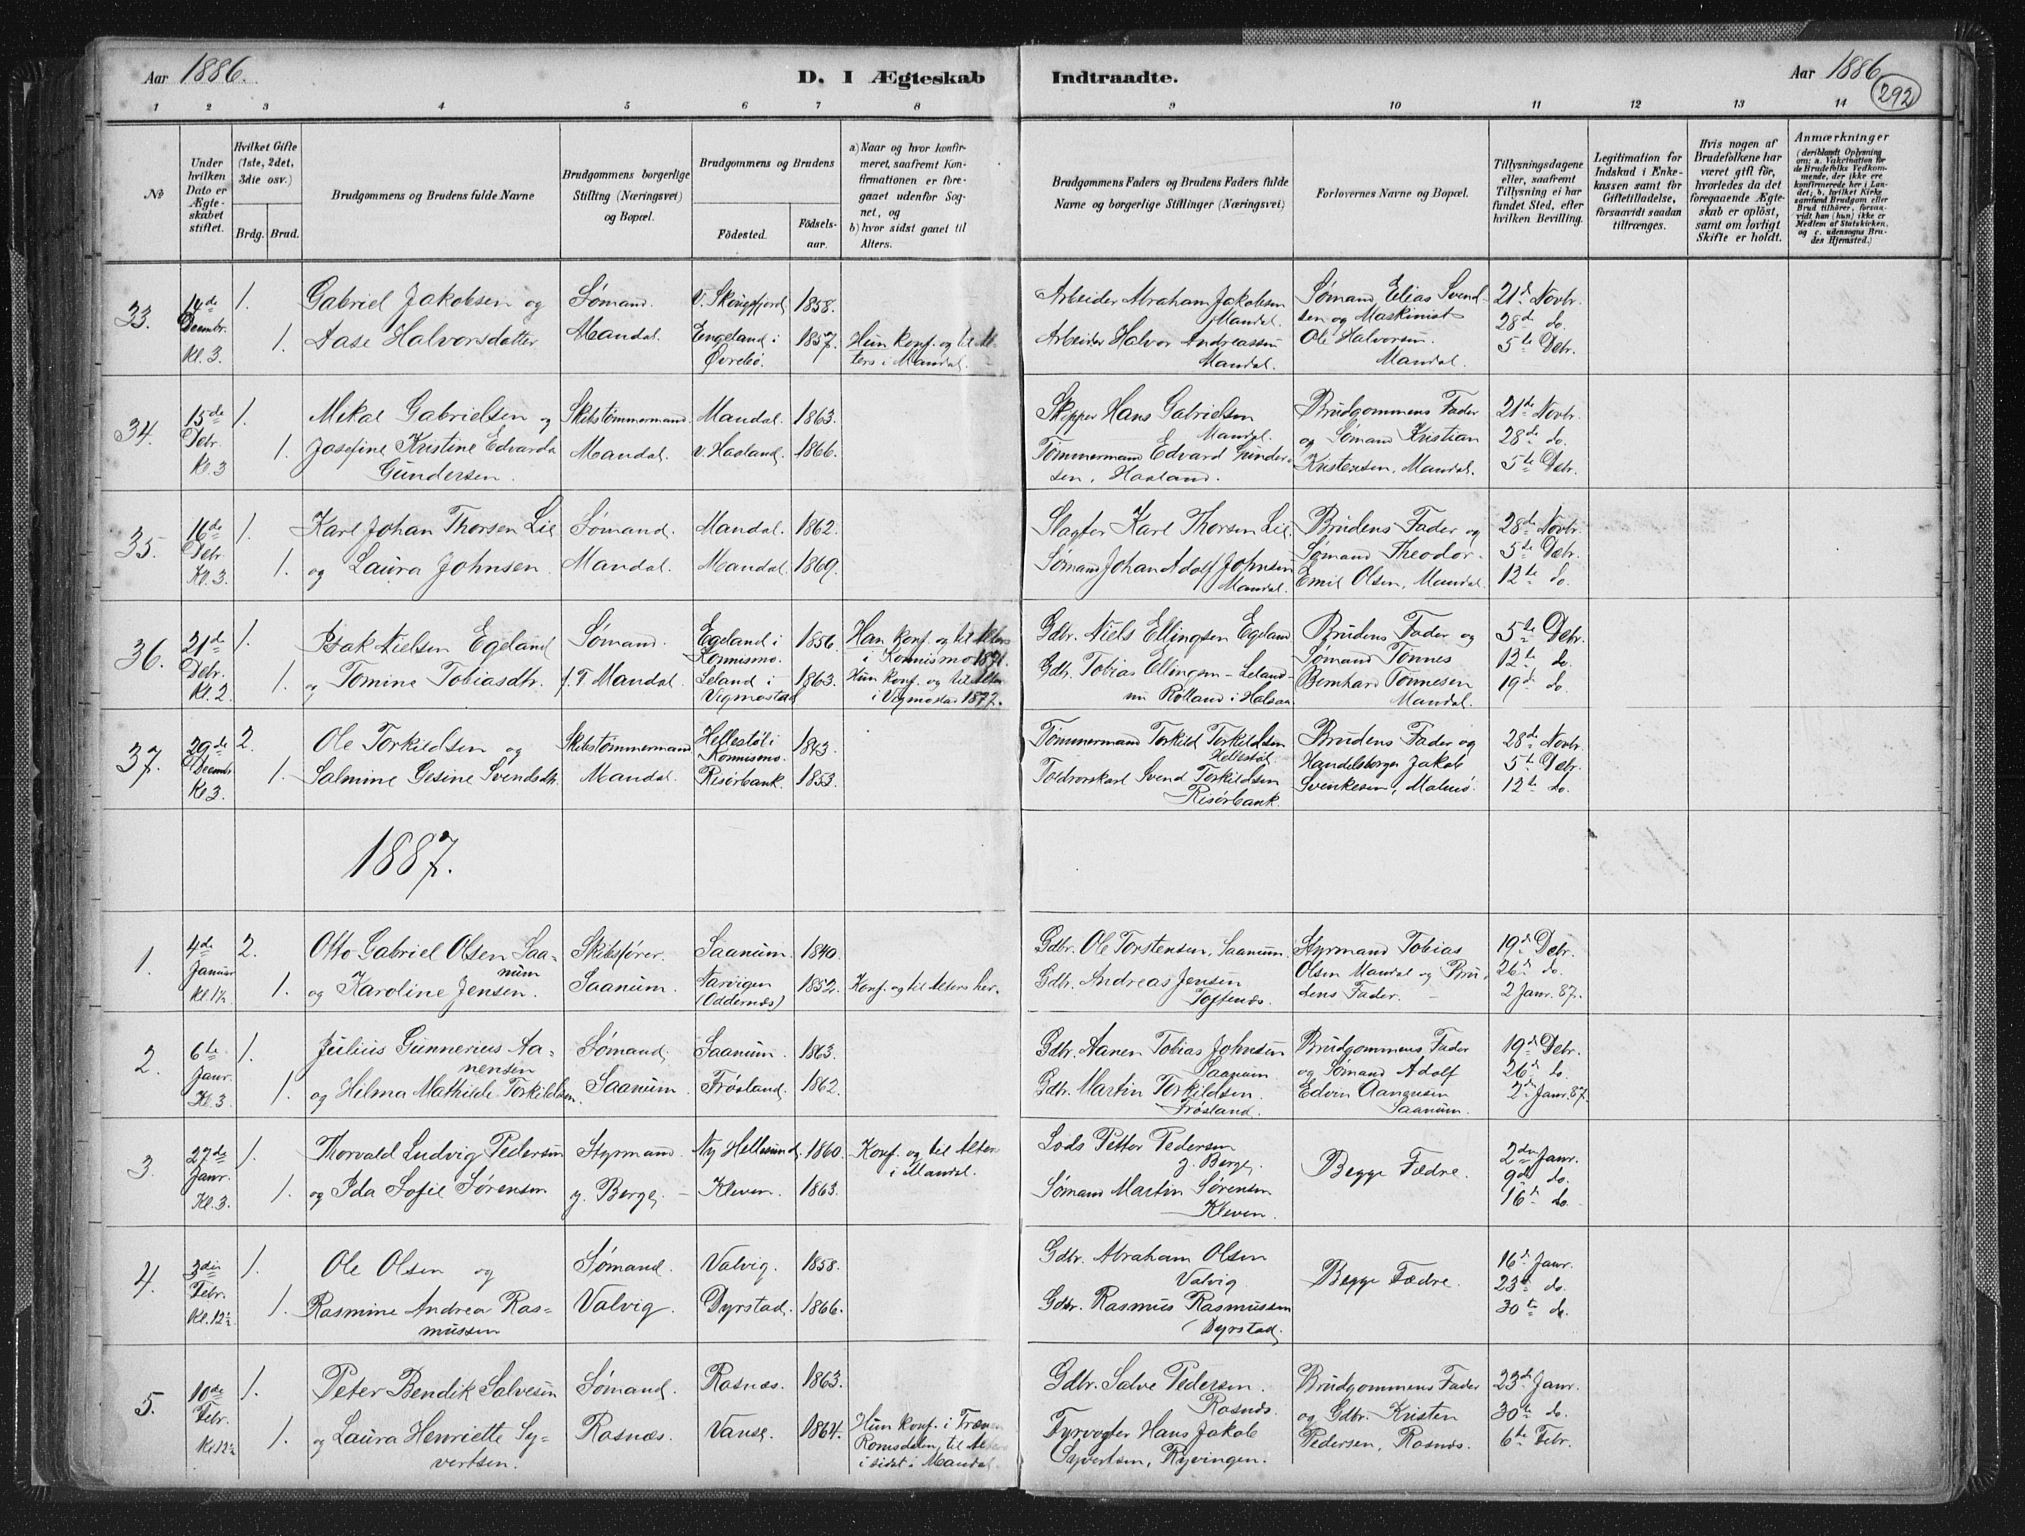 Aar 1886.
D. I Ægteskab Indtraadte.
Aar 1886
292
1 2 3 4 5 6 7 8 9 10 11 12 13 14
No
Under hvilken Dato er Ægteskabet stiftet.
Hvilket Gifte (1ste, 2det, 3die osv.)
Brdg. Brud.
Brudgommens og Brudens fulde Navne
Brudgommens borgerlige Stilling (Næringsvei) og Bopæl.
Brudgommens og Brudens
Födested.
Födselsaar.
a) Naar og hvor konfirmeret, saafremt Konfirmationen er foregaaet udenfor Sognet, og
b) hvor sidst gaaet til Alters.
Brudgommens Faders og Brudens Faders fulde Navne og borgerlige Stillinger (Næringsvei)
Forlovernes Navne og Bopæl.
Tillysningsdagene eller, saafremt Tillysning ei har fundet Sted, efter hvilken Bevilling.
Legitimation for Indskud i Enkekassen samt for Giftetilladelse, forsaavidt saadan tiltrænges.
Hvis nogen af Brudefolkene har været gift för, hvorledes da det foregaaende Ægteskab er oplöst, samt om lovligt Skifte er holdt.
Anmærkninger
(deriblandt Oplysning om: a. Vakcination for de Brudefolks Vedkommende, der ikke ere konfirmerede her i Landet; b. hvilket Kirkesamfund Brudgom eller Brud tilhörer, forsaavidt han (hun) ikke er Medlem af Statskirken, og c. udensogns Brudes Hjemsted.)
33. 14de Decembr. Kl. 3. 1. 1.
Gabriel Jakobsen og
Aase Halvorsdatter
Sømand.
Mandal.
V. Skougsfjord 1858.
Engeland i Øvrebø. 1857.
Hun konf. og til Alters i Mandal.
Arbeider Abraham Jakobsen Mandal.
Arbeider Halvor Andreassen Mandal.
Sømand Elias Svendsen og Maskinist Ole Halvorsen Mandal.
21de Novbr.
28de do.
5te Debr.
34. 15de Debr. Kl. 3 1. 1.
Mikal Gabrielsen og
Josefine Kristine Edvarda Gundersen.
Skibstømmermand
Mandal.
Mandal. 1863.
V. Haaland. 1866.
Skipper Hans Gabrielsen Mandal.
Tømmermand Edvard Gundersen, Haaland.
Brudgommens Fader og Sømand Kristian Kristensen, Mandal.
21de Novbr.
28de do.
5te Debr.
35. 16de Debr. Kl. 3. 1. 1.
Karl Johan Thorsen Lie
og Laura Johnsen.
Sømand.
Mandal.
Mandal. 1862.
Mandal. 1869.
Slagter Karl Thorsen Lie.
Sømand Johan Adolf Johnsen Mandal.
Brudens Fader og Sømand Theodor Emil Olsen, Mandal.
28de Novbr.
5te Debr.
12te do.
36. 21de Debr. Kl. 2. 1. 1.
Isak Nielsen Egeland
og Tomine Tobiasdtr.
Sømand.
f. T. Mandal.
Egeland i Konnismo. 1856.
Leland i Vigmostad 1863.
Han konf. og til Alters i Konnismo 1871.
Hun konf. og til Alters i Vigmostad 1877.
Gdbr. Niels Ellingsen Egeland
Gdbr. Tobias Ellingsen Leland nu Rolland i Halsaa
Brudens Fader og Sømand Tønnes Bernhard Tønnesen Mandal.
5te Debr.
12te do.
19de do.
37. 29de Decembr. Kl. 3. 2. 1.
Ole Torkildsen og
Salmine Gesine Svendsdtr.
Skibstømmermand
Mandal.
Hellestøl i Konnismo. 1843.
Risørbank. 1853.
Tømmermand Torkild Torkildsen Hellestøl.
Toldrorskarl Svend Torkildsen Risørbank.
Brudens Fader og Handelsborger Jakob Svenkesen, Malmø.
28de Novbr.
5te Debr.
12te do.
1887.
1. 4de Januar Kl. 1½ 2. 1.
Otto Gabriel Olsen Saanum
og Karoline Jensen.
Skibsfører.
Saanum.
Saanum. 1840.
Narvigen (Oddernæs) 1852.
Konf. og til Alters her.
Gdbr. Ole Torstensen, Saanum.
Gdbr. Andreas Jensen Toftenæs.
Styrmand Tobias Olsen Mandal og Brudens Fader.
19de Debr.
26de do.
2 Janr. 87.
2. 6te Janr. Kl. 3 1. 1.
Julius Gunnerius Aanensen
og Helma Mathilde Torkildsen.
Sømand.
Saanum.
Saanum. 1863.
Frøsland. 1862.
Gdbr. Aanen Tobias Johnsen Saanum
Gdbr. Martin Torkildsen. Frøsland.
Brudgommens Fader og Sømand Adolf Edvin Aanensen Saanum.
19de Debr.
26de do.
2den Janr. 87.
3. 27de Janr. Kl. 3. 1. 1.
Thorvald Ludvig Pedersen
og Ida Sofie Sørensen
Styrmand.
y. Berge.
Ny Hellesund. 1860.
Kleven. 1863.
Konf. og til Alters i Mandal.
Lods Petter Pedersen y. Berge.
Sømand Martin Sørensen Kleven.
Begge Fædre.
2den Janr.
9de do.
16de do.
4. 3die Febr. Kl. 12½ 1. 1.
Ole Olsen og
Rasmine Andrea Rasmussen
Sømand.
Valvig.
Valvig. 1858.
Dyrstad. 1866.
Gdbr. Abraham Olsen Valvig.
Gdbr. Rasmus Rasmussen Dyrstad.
Begge Fædre.
16de Janr.
23de do.
30te do.
5. 10de Febr. Kl. 12½ 1. 1.
Peter Bendik Salvesen
og Laura Henriette Syvertsen.
Sømand.
Rosnæs.
Rosnæs. 1863.
Vanse. 1864.
Hun konf. i Romsdalen, til Alters sidst i Mandal.
Gdbr. Salve Pedersen. Rosnæs.
Fyrvogter Hans Jakob Syvertsen, Ryvingen.
Brudgommens Fader og Gdbr. Kristen Pedersen, Rosnæs.
23de Janr.
30te do.
6te Febr.